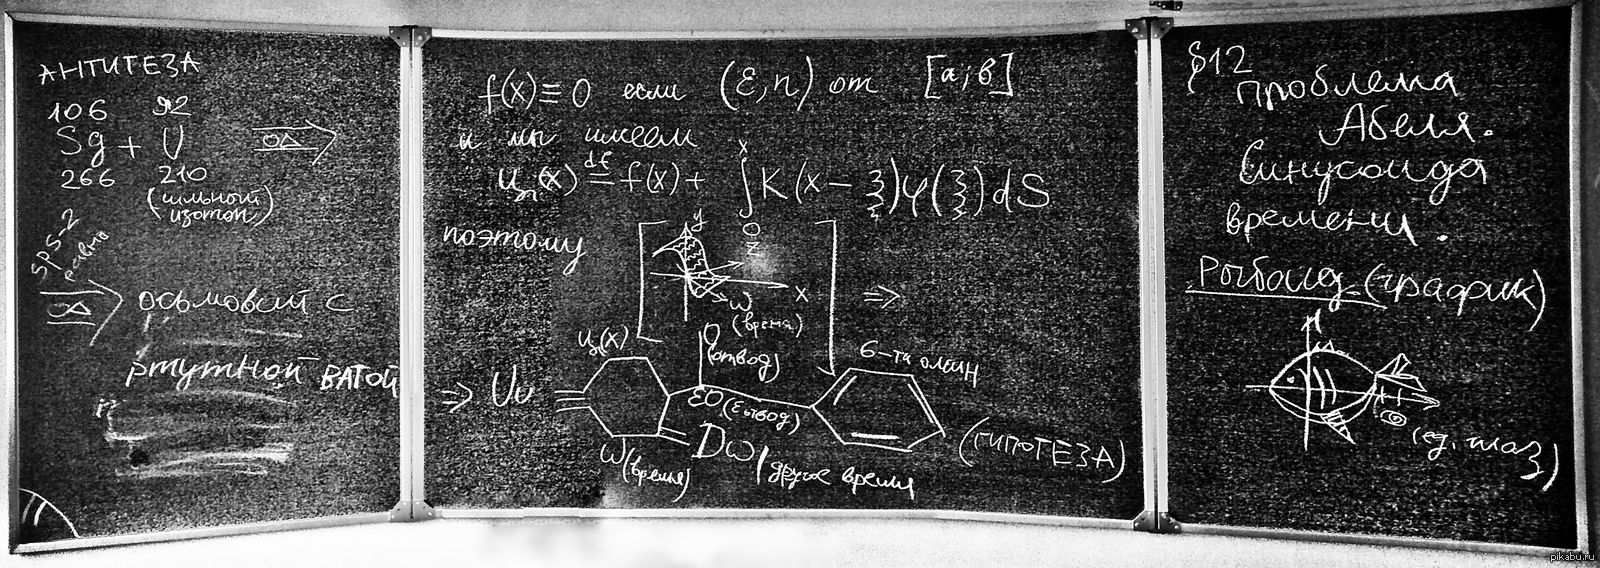 АНТИТЕЗА
106 92
Sg + U
266 210
(ильный
изотоп)
SPS-2
осьмовий с
ртутной ватой
f(x) ≡ 0 если (ε, n) от [a; b]
и мы имеем
(x) df = f(x) + x ∫ 0 K(x − ξ) φ(ξ) dS
поэтому
y
z
x
⇒
w
(время)
(отвод)
6-та олкин
⇒
εО (εывод)
w (время)
Dw
(другое время
(ГИПОТЕЗА)
§12
Проблема
Абеля.
Синусоида
времени.
Рогбоид (график)
(ед. глаз)
pikabu.ru